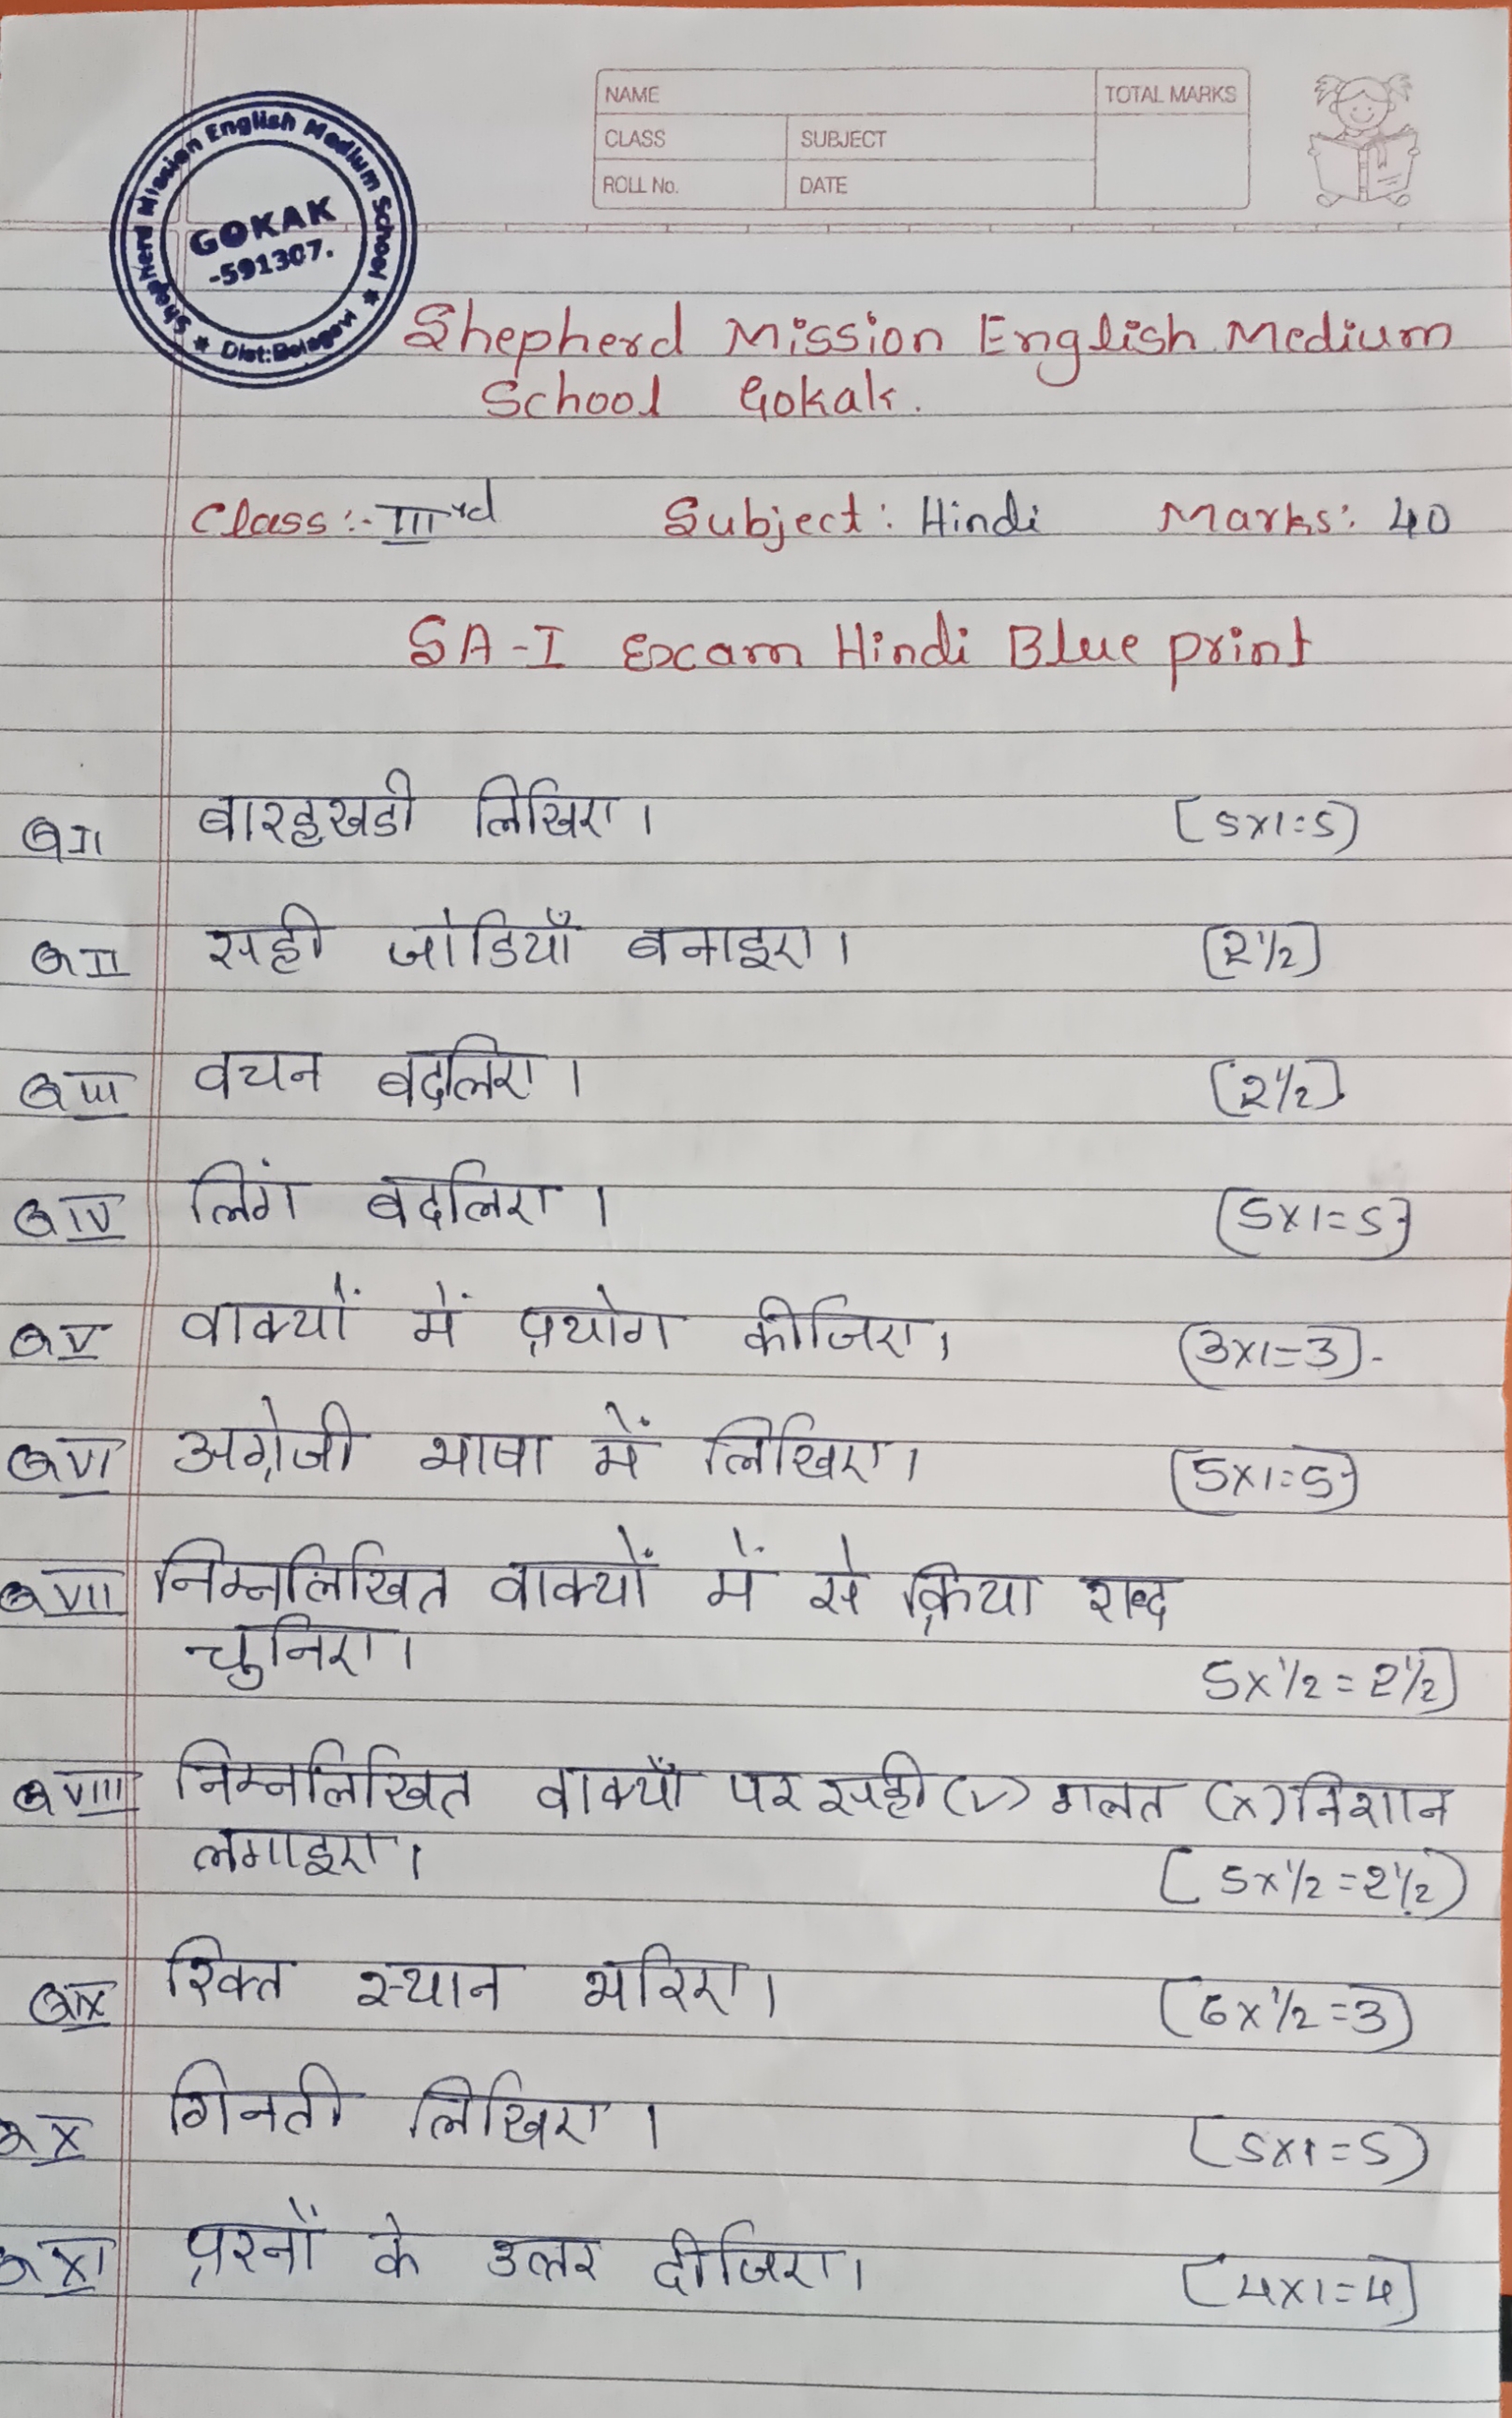 NAME
TOTAL MARKS
CLASS
SUBJECT
ROLL No.
DATE
Shepherd Mission English Medium School
GOKAK
-591307.
★ Dist:Belagavi ★
Shepherd Mission English Medium
School Gokak.
Class:- IIIrd Subject: Hindi Marks: 40
SA-I Excam Hindi Blue print
Q I बारहखडी लिखिए। [5x1=5)
Q II सही जोडियाँ बनाइए। [2½]
Q III वचन बदलिए। [2½]
Q IV लिंग बदलिए। [5x1=5}
Q V वाक्यों में प्रयोग कीजिए। (3x1=3).
Q VI अग्रेजी भाषा में लिखिए। [5x1=5}
Q VII निम्नलिखित वाक्यों में से क्रिया शब्द
चुनिए।
5x½=2½]
Q VIII निम्नलिखित वाक्यों पर सही (✓) गलत (x) निशान
लगाइए।
[5x½=2½)
Q IX रिक्त स्थान भरिए। (6x½=3)
Q X गिनती लिखिए। [5x1=5)
Q XI प्रश्नों के उत्तर दीजिए। [4x1=4]